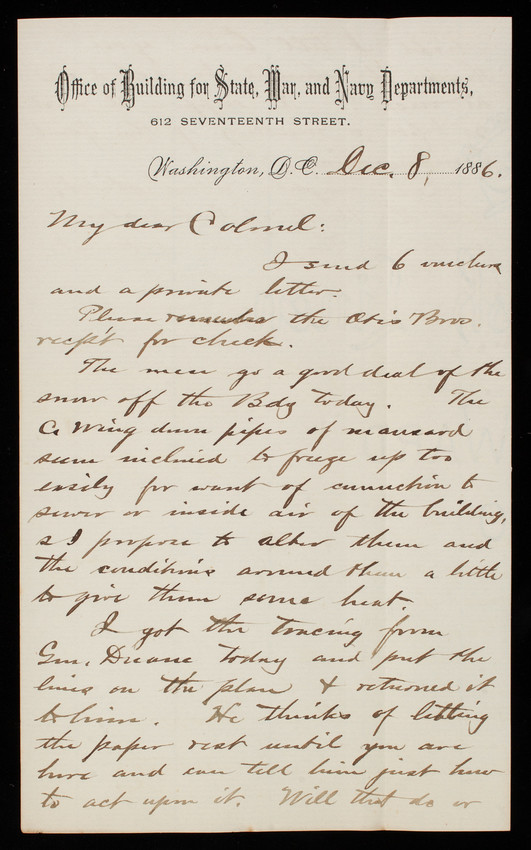 Office of Building for State, War, and Navy Departments,
612 SEVENTEENTH STREET.
Washington, D.C. Dec. 8, 1886.
My dear Colonel:
I send 6 vouchers
and a private letter.
Please remember the Otis Bros.
recp't for check.
The men go a good deal of the
snow off the Bdg today. The
C. Wing down pipes of mansard
seem inclined to freeze up too
easily for want of connection to
sewer or inside air of the building,
s I propose to alter them and
the conditions around them a little
to give them some heat.
I got the tracing from
Gen. Duane today and put the
lines on the plan & returned it
to him. He thinks of letting
the paper rest until you are
here and can tell him just how
to act upon it. Will that do or